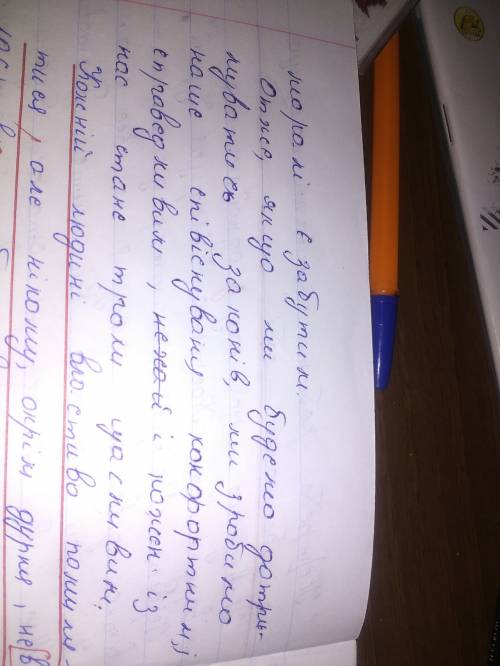 моралі є забутим.
Отже, якщо ми будемо дотри-
муватись законів, ми зробимо
наше співіснуваня конфортним,і
справедливим, нехай і кожен із
нас стане трохи щасливим.
Кожній людині властиво помиля-
тися, але нікому, окрім дурня, не в